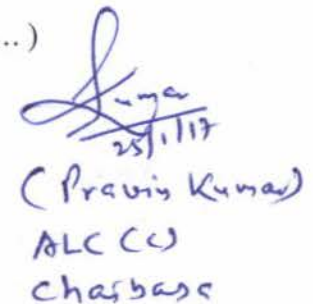 ..)
Kumar
25/1/17
(Pravin Kumar)
ALC (C)
Chaibasa